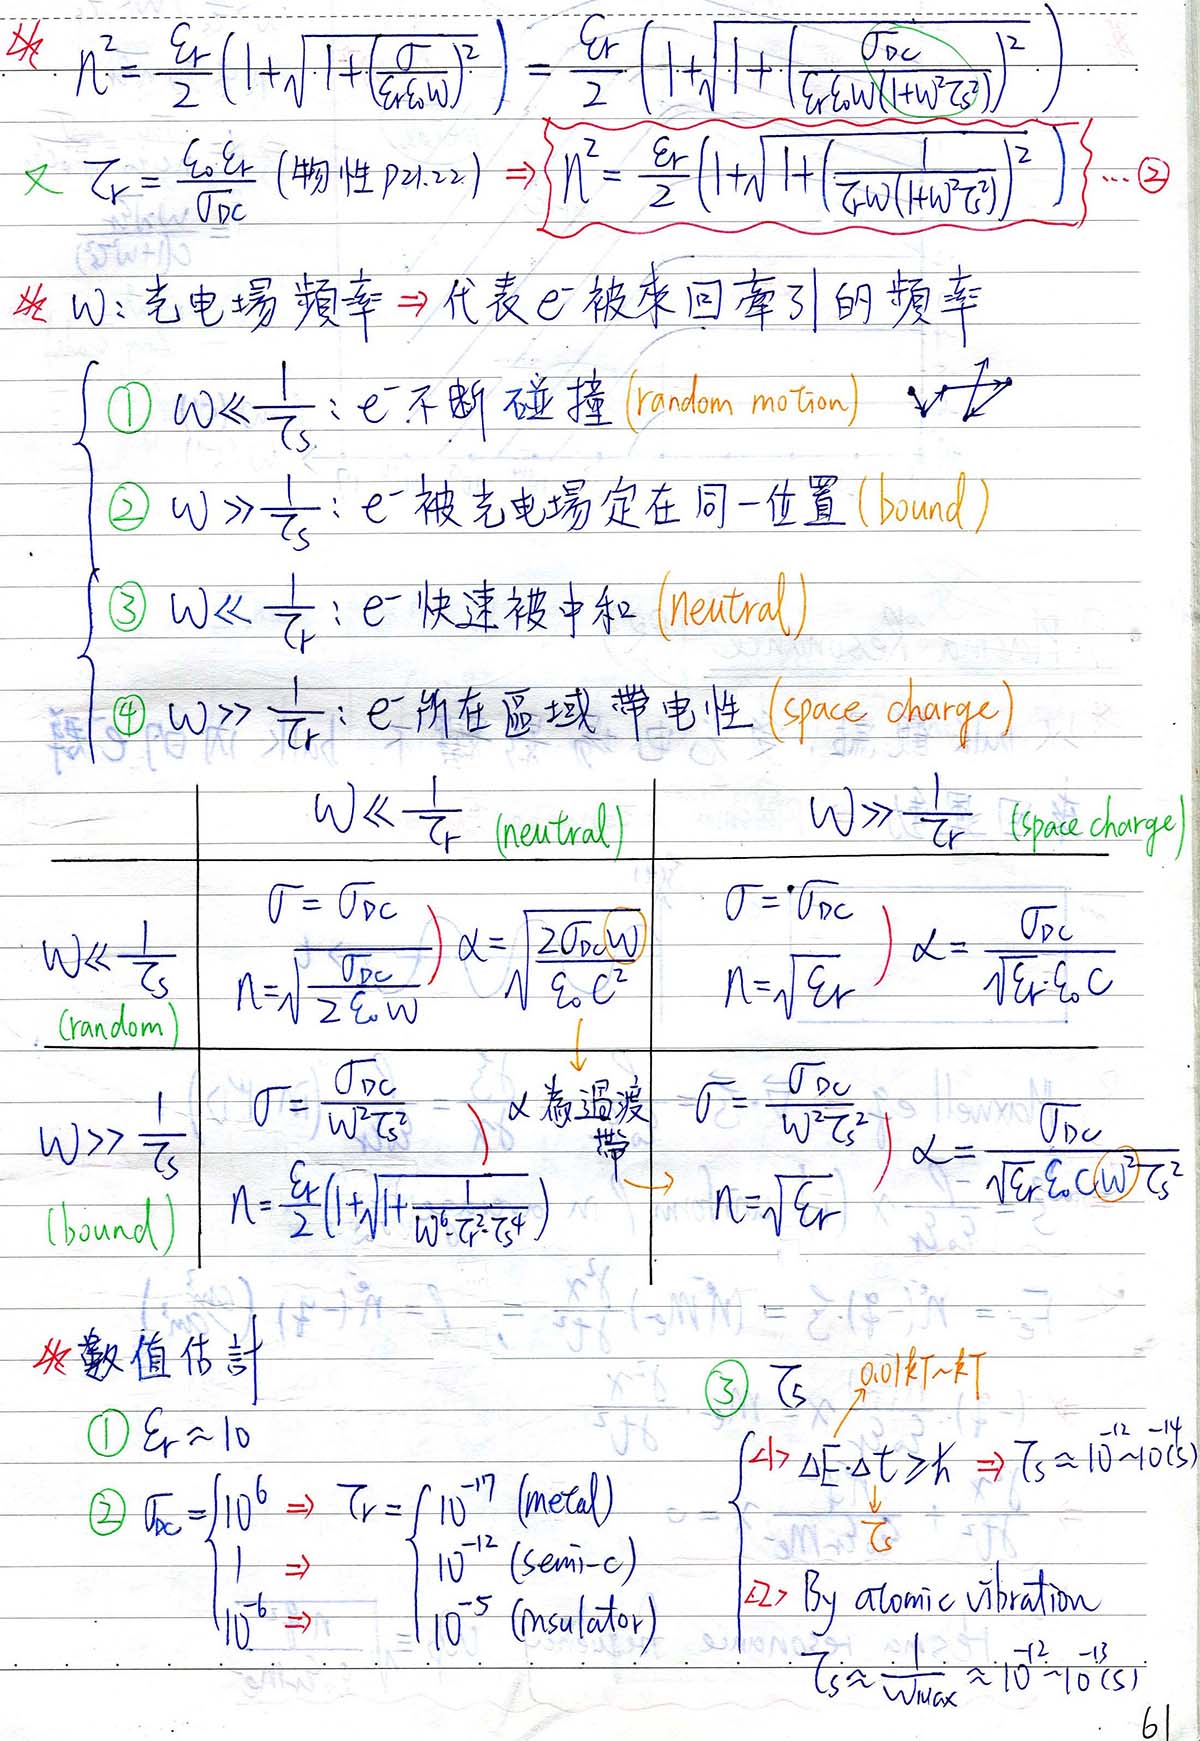 ※ n² = εr/2 (1+√(1+(σ/(εrε₀ω))²)) = εr/2 (1+√(1+(σDC/(εrε₀ω(1+ω²τs²)))²))
又 τr = ε₀εr/σDC (物性 P21.22) ⇒ n² = εr/2 (1+√(1+(1/(τrω(1+ω²τs²)))²)) ... ②
※ ω: 光电場頻率 ⇒ 代表e⁻被來回牽引的頻率
① ω ≪ 1/τs : e⁻不断碰撞 (random motion)
② ω ≫ 1/τs : e⁻被光电場定在同一位置 (bound)
③ ω ≪ 1/τr : e⁻快速被中和 (neutral)
④ ω ≫ 1/τr : e⁻所在區域帶电性 (space charge)
ω ≪ 1/τr (neutral)
ω ≫ 1/τr (space charge)
ω ≪ 1/τs (random)
σ = σDC
n = √(σDC/(2ε₀ω))
α = √(2σDCω/(ε₀c²))
σ = σDC
n = √εr
α = σDC/(√εr·ε₀c)
ω ≫ 1/τs (bound)
σ = σDC/(ω²τs²)
n = εr/2 (1+√(1+1/(ω⁶·τr²·τs⁴)))
α 為過渡
帶 →
σ = σDC/(ω²τs²)
n = √εr
α = σDC/(√εr ε₀cω²τs²)
※ 數值估計
① εr ≈ 10
② σDC = { 10⁶ ⇒ τr = { 10⁻¹⁷ (metal)
1 ⇒ 10⁻¹² (semi-c)
10⁻⁶ ⇒ 10⁻⁵ (insulator)
③ τs
0.01kT~kT
<1> ΔE·Δt ≥ ħ ⇒ τs ≈ 10⁻¹²~10⁻¹⁴(s)
τs
<2> By atomic vibration
τs ≈ 1/ωMax ≈ 10⁻¹²~10⁻¹³(s)
61